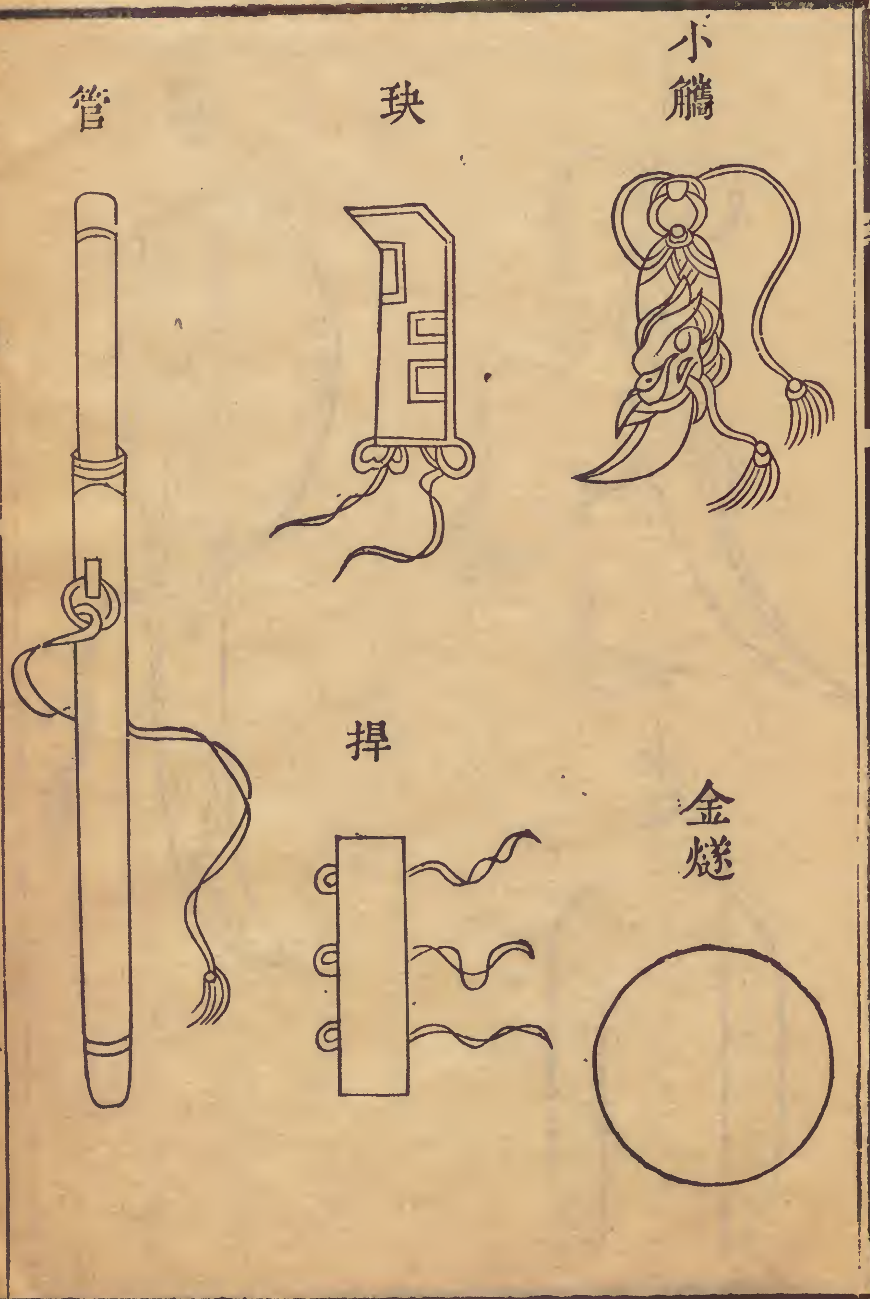 小觿
金燧
玦
捍
管